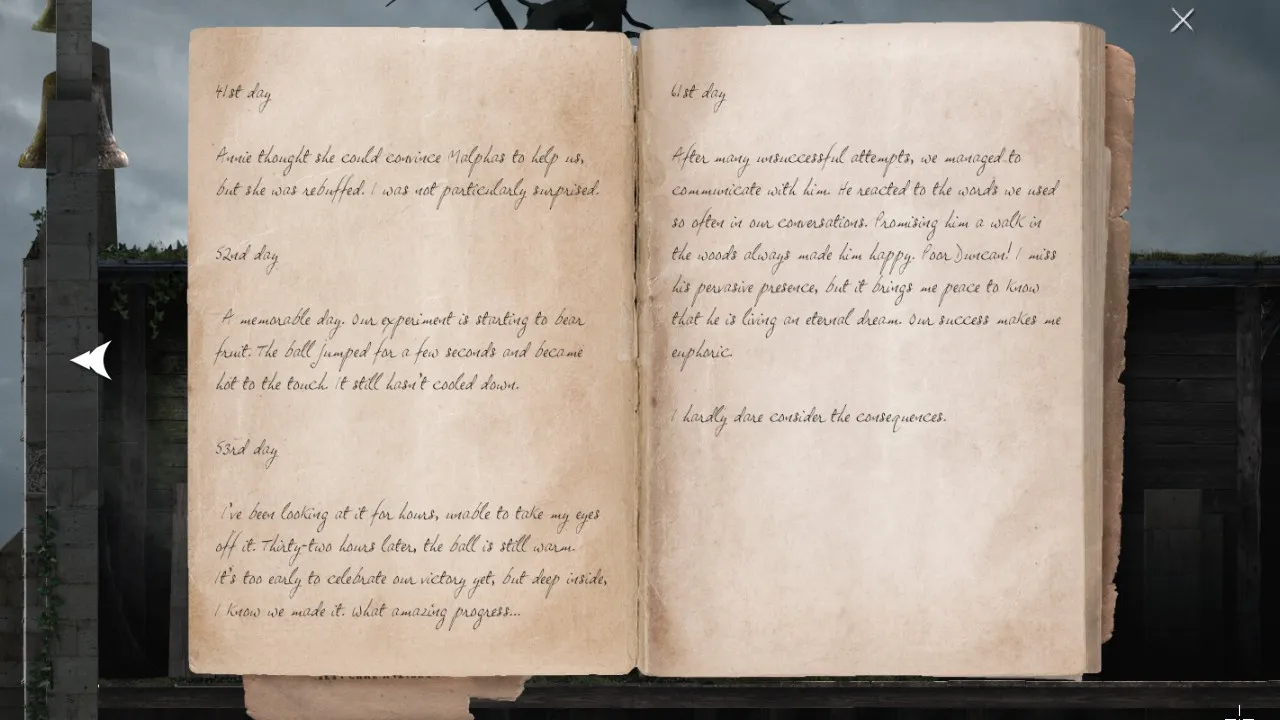 41st day
Annie thought she could convince Malphas to help us,
but she was rebuffed. I was not particularly surprised.
52nd day
A memorable day. Our experiment is starting to bear
fruit. The ball jumped for a few seconds and became
hot to the touch. It still hasn't cooled down.
53rd day
I've been looking at it for hours, unable to take my eyes
off it. Thirty-two hours later, the ball is still warm.
It's too early to celebrate our victory yet, but deep inside,
I know we made it. What amazing progress...
61st day
After many unsuccessful attempts, we managed to
communicate with him. He reacted to the words we used
so often in our conversations. Promising him a walk in
the woods always made him happy. Poor Duncan! I miss
his pervasive presence, but it brings me peace to know
that he is living an eternal dream. Our success makes me
euphoric.
I hardly dare consider the consequences.